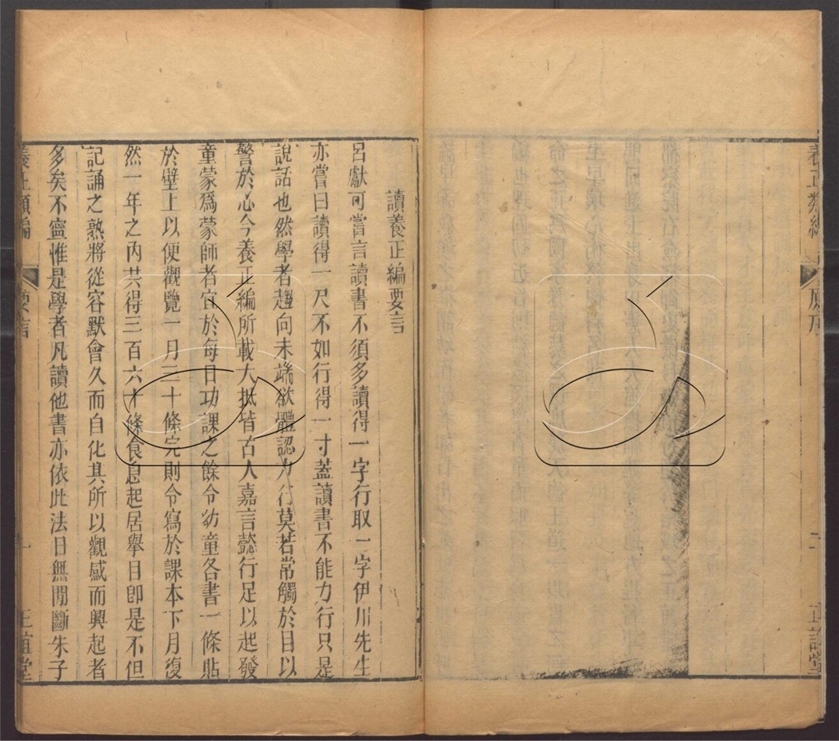 養正類編
原序
二
正誼堂
讀養正編要言
呂獻可嘗言讀書不須多讀得一字行取一字伊川先生
亦嘗曰讀得一尺不如行得一寸蓋讀書不能力行只是
說話也然學者趨向未端欲體認力行莫若常觸於目以
警於心今養正編所載大抵皆古人嘉言懿行足以起發
童蒙爲蒙師者宜於每日功課之餘令幼童各書一條貼
於壁上以便觀覽一月三十條完則令寫於課本下月復
然一年之內共得三百六十條食息起居舉目卽是不但
記誦之熟將從容默會久而自化其所以觀感而興起者
多矣不寧惟是學者凡讀他書亦依此法日無閒斷朱子
養正類編
要言
一
正誼堂